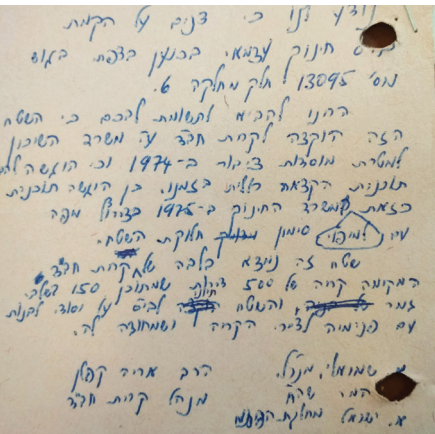 נודע לנו כי דנים על הקמת
בי"ס חינוך עצמאי בכנען בצפת בגוש
מס' 13095 חלק מחלקה 6.
הרינו להביא לתשומת לבכם כי השטח
הזה הוקצה לקרית חב"ד ע"י משרד השיכון
למטרת מוסדות ציבור ב-1974 וכי הוגשה
תוכנית הקצאה כללית בזמנו. כן הוגשה תוכנית
כזאת למשרד החינוך ב-1975 בצרוף מפה
עם סימון חלוקת השטח.
שטח זה נמצא בלבה של קרית חב"ד
המקימה קריה של 500 דירות שמתוכן 150 בשלבי
גמר והשטח לבי"ס על יסודי לבנות
עם פנימיה לצעי' הקריה ושמחוצה לה.
שמואלי, מנכ"ל. הרב אריה קפלן
מנהל קרית חב"ד
ישראל מחלקת